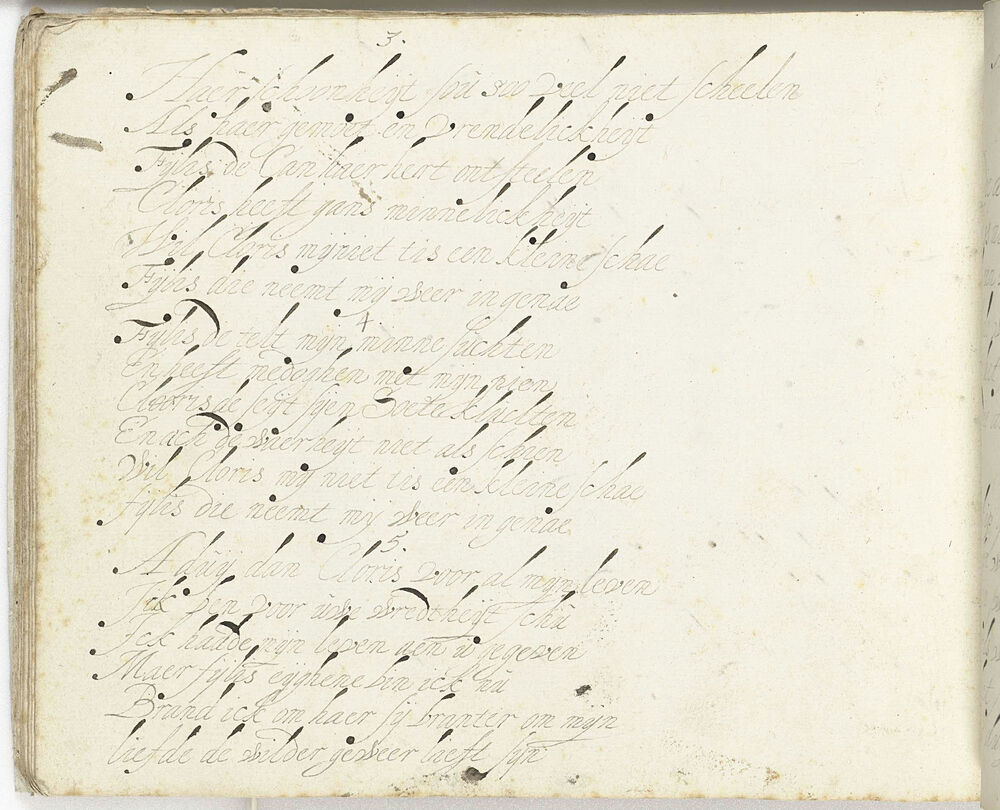 3.
Haer schoonheyt sou soo veel niet scheelen
Als haer gemoet en vrendelickheyt
Fylis de Can haer hert ont steelen
Cloris heeft gans minnelickheyt
Wil Cloris mij niet tis een kleine schae
Fylis die neemt mij weer in genae
4
Fylis de telt mijn minne suchten
En heeft medoghen met mijn pien
Cloris de seyt sijen Soete kluchten
En ach de waerheyt niet als schien
Wil Cloris mij niet tis een kleine schae
fylis die neemt mij weer in genae
5.
Aduij dan Cloris voor al mijn leven
Ick ben voor uwe wredtheyt schu
Ick hadde mijn leven aen u gegeven
Maer fylis eyghene bin ick nu
Brand ick om haer sij branter om mijn
liefde de wilder geweer lieft sijn